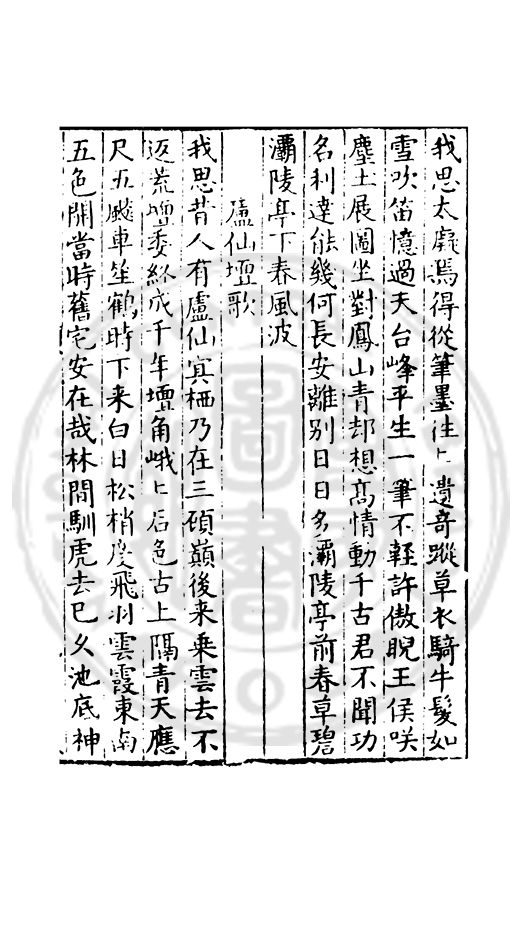 我思太虗焉得從筆墨往上遺奇蹤草衣騎牛髮如
雪吹笛憶過天台峰平生一筆不輕許傲睨王侯咲
塵土展圖坐對鳳山青却想髙情動千古君不聞功
名利達能幾何長安離别日日多灞陵亭前春草碧
灞陵亭下春風波
盧仙壇歌
我思昔人有盧仙㝠栖乃在三碩巔後来乗雲去不
返荒壇委終成千年壇角峨上石色古上隔青天應
尺五飈車笙鶴時下来白日松梢度飛羽雲霞東南
五色開當時舊宅安在哉林間馴虎去已久池底神